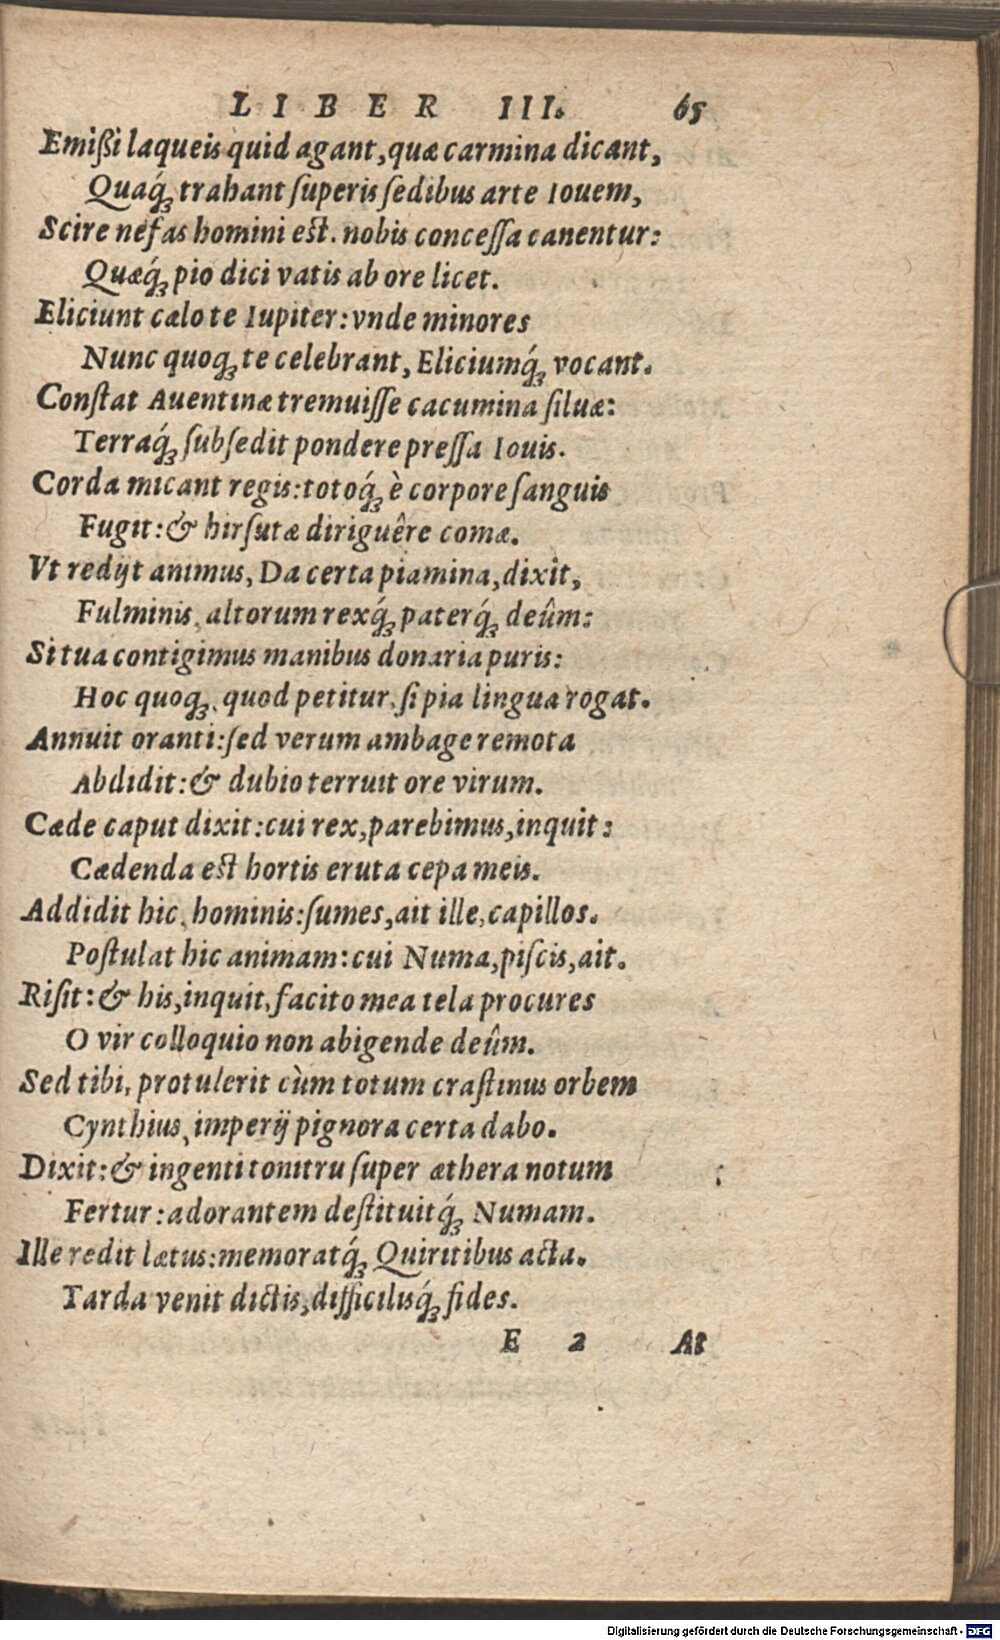 LIBER III. 65
Emißi laqueis quid agant, quæ carmina dicant,
Quaq́ꝫ trahant ſuperis ſedibus arte Iouem,
Scire nefas homini est. nobis conceſſa canentur:
Quæq́ꝫ pio dici vatis ab ore licet.
Eliciunt cælo te Iupiter: vnde minores
Nunc quoqꝫ te celebrant, Eliciumq́ꝫ vocant.
Conſtat Auentinæ tremuiſſe cacumina ſiluæ:
Terraq́ꝫ ſubſedit pondere preſſa Iouis.
Corda micant regis: totoq́ꝫ è corpore ſanguis
Fugit: & hirſutæ diriguêre comæ.
Vt redijt animus, Da certa piamina, dixit,
Fulminis, altorum rexq́ꝫ paterq́ꝫ deûm:
Si tua contigimus manibus donaria puris:
Hoc quoqꝫ, quod petitur, ſi pia lingua rogat.
Annuit oranti: ſed verum ambage remota
Abdidit: & dubio terruit ore virum.
Cæde caput dixit: cui rex, parebimus, inquit:
Cædenda est hortis eruta cepa meis.
Addidit hic, hominis: ſumes, ait ille, capillos.
Poſtulat hic animam: cui Numa, piſcis, ait.
Riſit: & his, inquit, facito mea tela procures
O vir colloquio non abigende deûm.
Sed tibi, protulerit cùm totum craſtinus orbem
Cynthius, imperij pignora certa dabo.
Dixit: & ingenti tonitru ſuper æthera notum
Fertur: adorantem deſtituitq́ꝫ Numam.
Ille redit lætus: memoratq́ꝫ Quiritibus acta.
Tarda venit dictis, difficilisq́ꝫ fides.
E 2 At
Digitalisierung gefördert durch die Deutsche Forschungsgemeinschaft - DFG